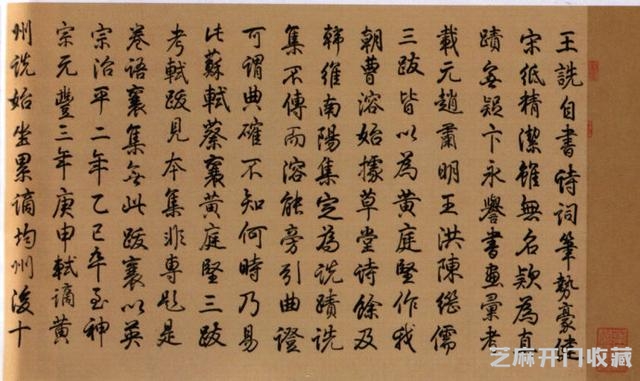 王詵自書詩詞筆勢豪健
宋紙精潔雖無名款為真
蹟無疑卞永譽書畫彙考
載元趙肅明王洪陳繼儒
三跋皆以為黃庭堅作我
朝曹溶始據草堂詩餘及
韓維南陽集定為詵蹟詵
集不傳而溶能旁引曲證
可謂典確不知何時乃易
此蘇軾蔡襄黃庭堅三跋
考軾跋見本集非專題是
卷語襄集無此跋襄以英
宗治平二年乙巳卒至神
宗元豐三年庚申軾謫黃
州詵始坐累謫均州後十
芝麻开门收藏